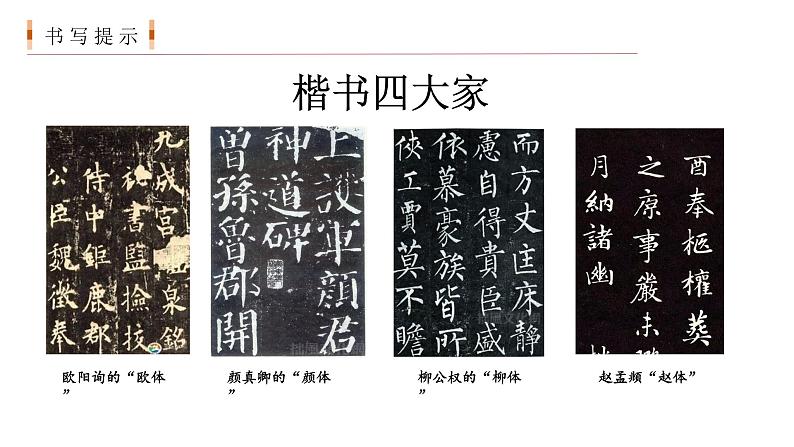 书写提示
楷书四大家
九成宮醴泉銘
秘書監撿挍
侍中鉅鹿郡
公臣魏徵奉
上護軍顏君
神道碑
曾孫魯郡開
而方丈匡床靜
慮自得貴臣盛
依慕豪族皆所
俠工賈莫不瞻
酉奉柩權葬
之原事嚴未
月納諸幽
欧阳询的“欧体
”
颜真卿的“颜体
”
柳公权的“柳体
”
赵孟頫“赵体”